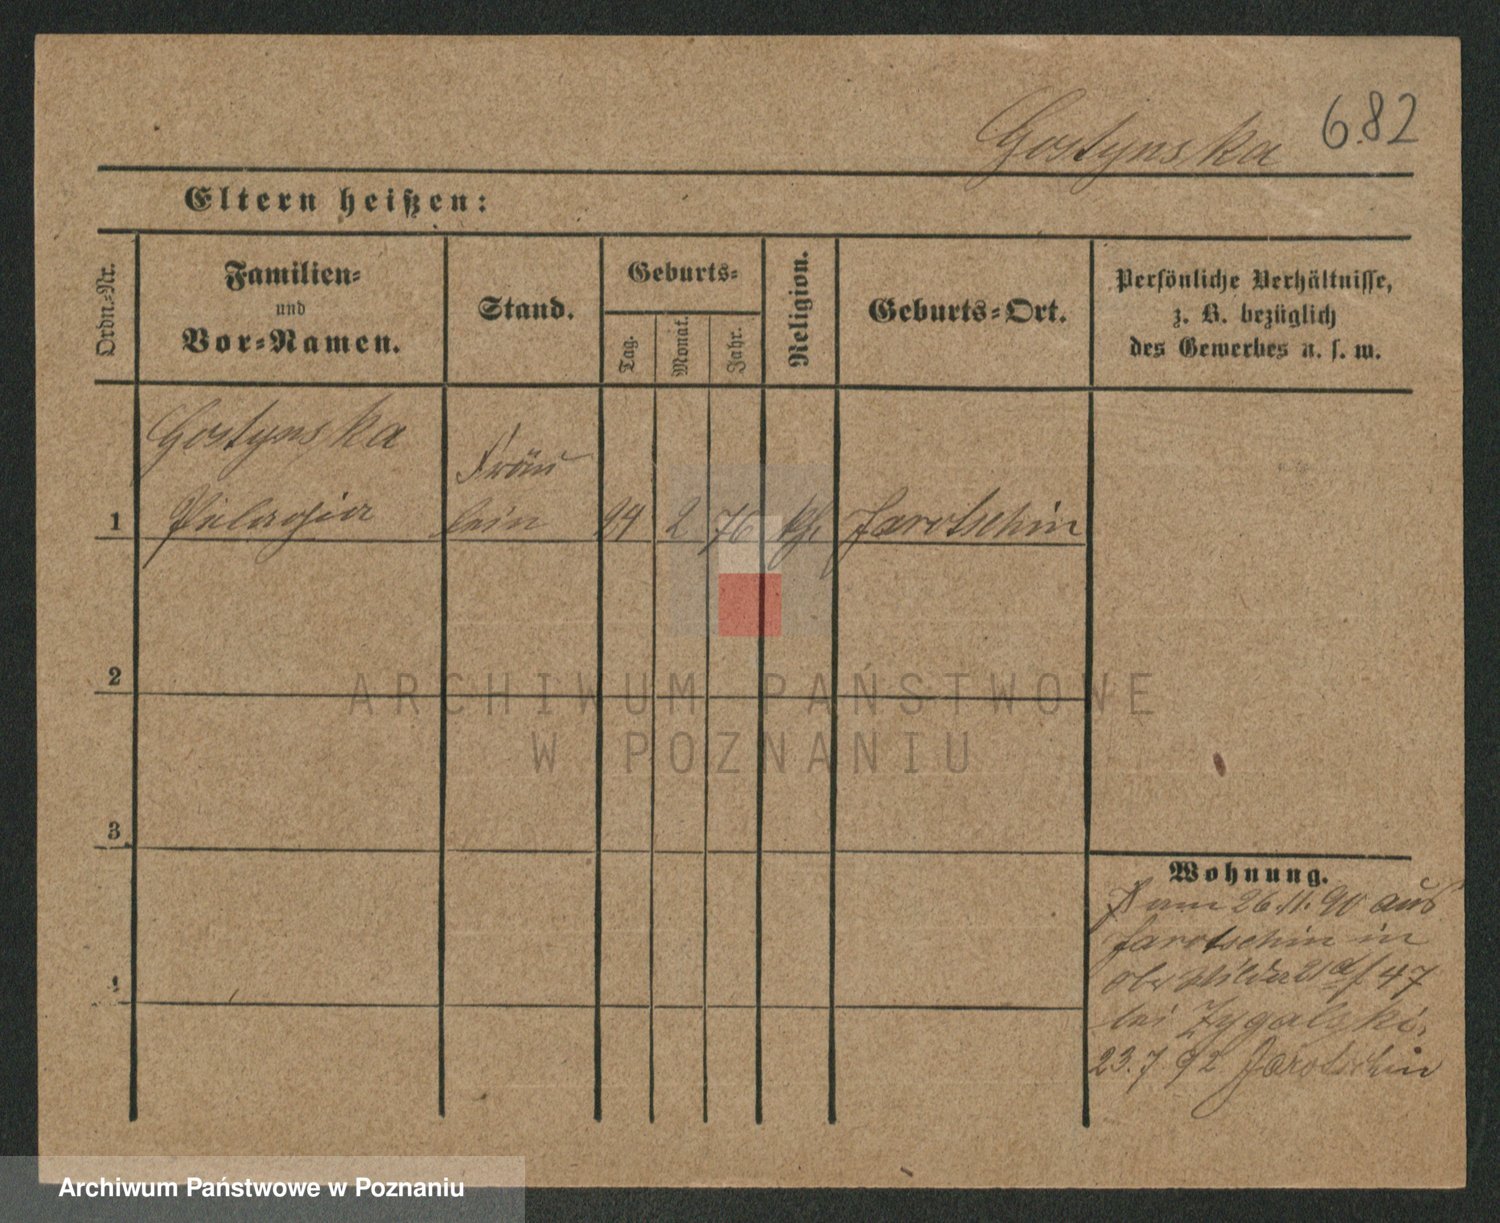 Gostynska 682
Eltern heißen:
Ordn.-Nr.
Familien-
und
Vor-Namen.
Stand.
Geburts-
Tag.
Monat.
Jahr.
Religion.
Geburts-Ort.
Persönliche Verhältnisse,
z. B. bezüglich
des Gewerbes u. s. w.
Gostynska
Fräu
1 Pelagia lein 2 76 Jarotschin
2
3
4
Wohnung.
am 26.11.90 aus
Jarotschin in
47
bei Zygalski,
23.7.92 Jarotschin
ARCHIWUM PAŃSTWOWE
W POZNANIU
Archiwum Państwowe w Poznaniu